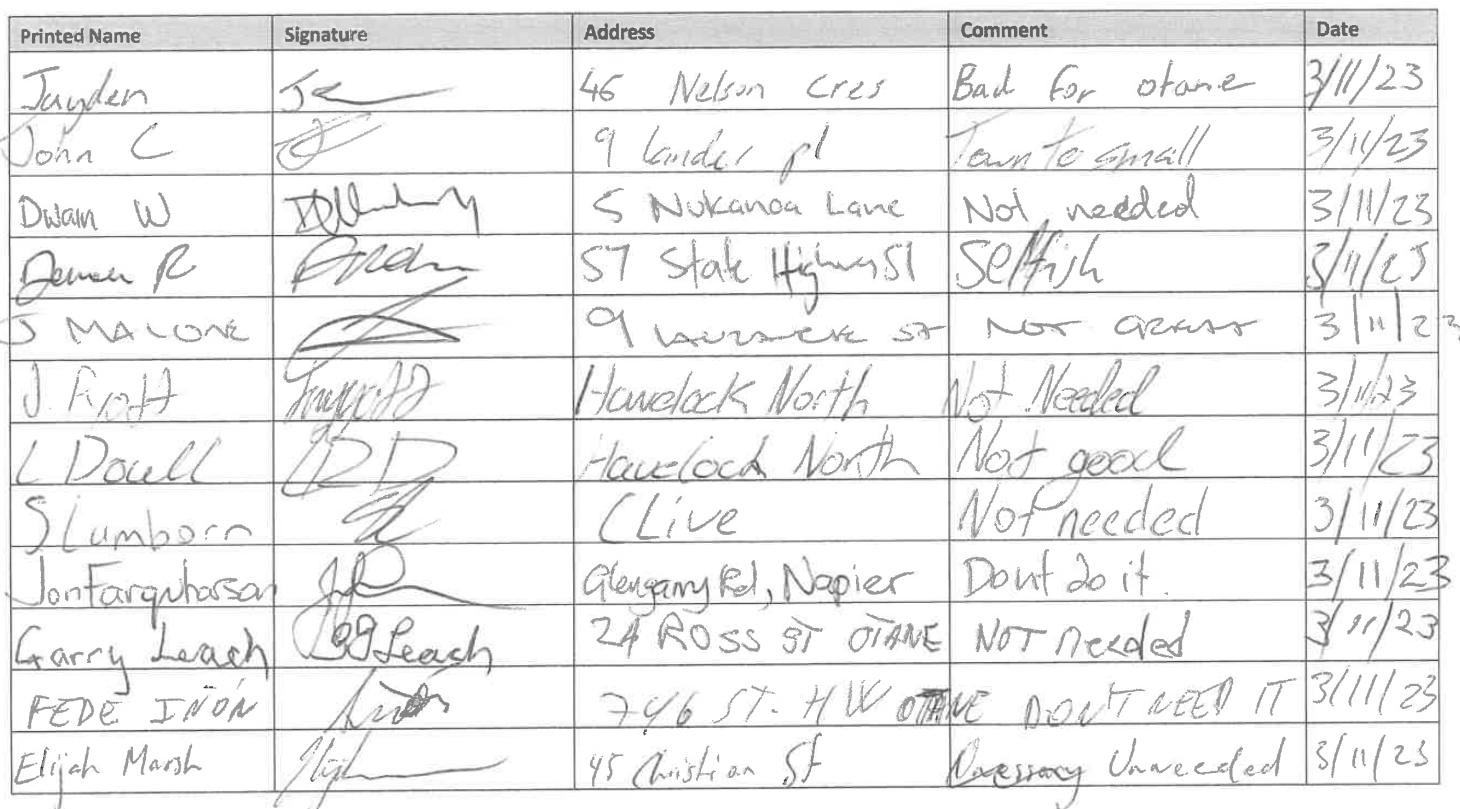 Printed Name Signature Address Comment Date
Jayden 46 Nelson Cres Bad for otane 3/11/23
John C 9 Lander pl Town to small 3/11/23
Dwain W 5 Nukanoa Lane Not needed 3/11/23
R 57 State Highway 51 Selfish 3/11/23
J MALONE 9 ST NOT GREAT 3/11/23
J. Havelock North Not Needed 3/11/23
L Dowell Havelock North Not good 3/11/23
S Lumborn CLive Not needed 3/11/23
Jon Farquharson Glengarry Rd, Napier Dont do it. 3/11/23
Garry Leach GJ Leach 24 ROSS ST OTANE NOT needed 3/11/23
FEDE IÑON 746 ST. HW OTANE DON'T NEED IT 3/11/23
Elijah Marsh 45 Christian St Unneeded 3/11/23